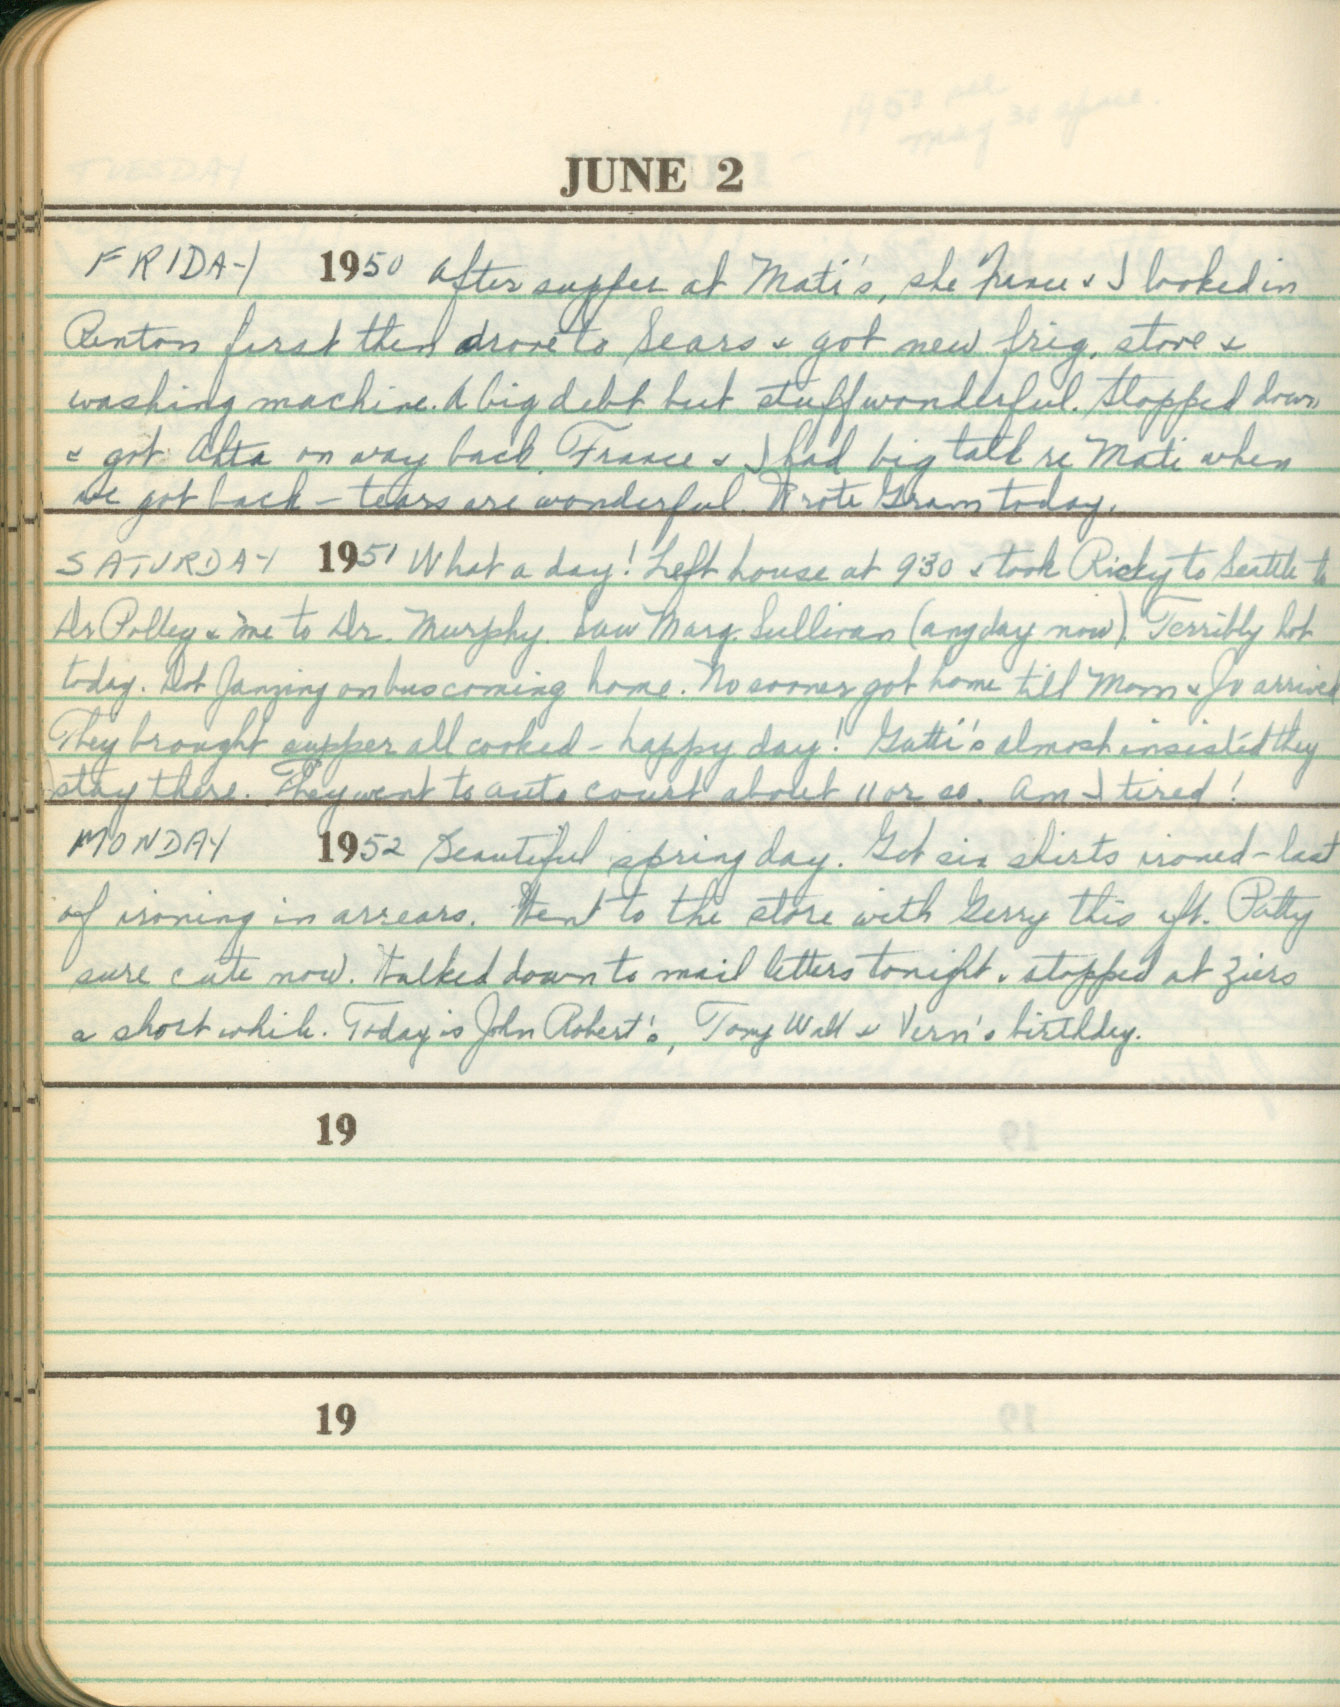 JUNE 2
FRIDAY 1950 After supper at Mati's, she France & I looked in
Renton first then drove to Sears & got new frig, stove &
washing machine. A big debt but stuff wonderful. Stopped down
& got Alta on way back. France & I had big talk re Mati when
we got back – tears are wonderful. Wrote Gram today.
SATURDAY 1951 What a day! Left house at 9:30 & took Ricky to Seattle to
Dr Polley & me to Dr. Murphy. Saw Marg. Sullivan (any day now). Terribly hot
today. Dot Janzing on bus coming home. No sooner got home till Mom & Jo arrived
They brought supper all cooked – happy day! Gatti's almost insisted they
stay there. They went to auto court about 11 or so. Am I tired!
MONDAY 1952 Beautiful spring day. Got six shirts ironed – last
of ironing in arrears. Went to the store with Gerry this aft. Patty
sure cute now. Walked down to mail letters tonight & stopped at Ziers
a short while. Today is John Robert's, Tony Walt & Vern's birthday.
19
19